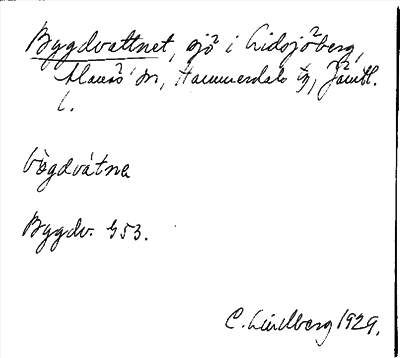 Byggdvattnet, sjö i Lidsjöberg,
Alanäs sn, Hammerdals tg, Jämtl.
l.
Bygdv. 453.
C. Lindberg 1929.